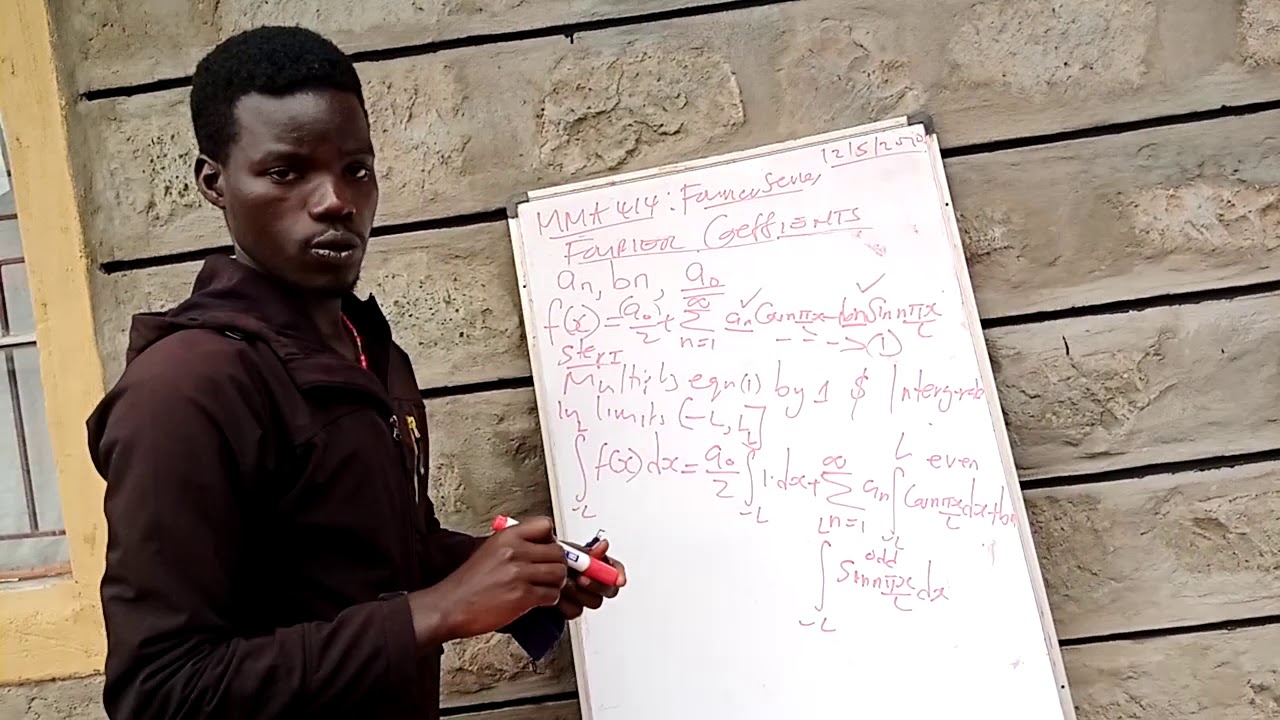 12/5/20
MMA 414: Fourier Series
FOURIER COEFFIENTS
an, bn, a₀
f(x) = a₀/2 + ∞∑n=1 an Cos nπx/L + bn Sin nπx/L
- - - -> (1)
Step I
Multiply eqn (1) by 1 $ Intergrate
in limits (-L, L]
∫-L^L f(x) dx = a₀/2 ∫-L^L 1·dx + ∞∑n=1 an ∫-L^L Cos nπx/L dx + bn
even
∫-L^L Sin nπx/L dx
odd